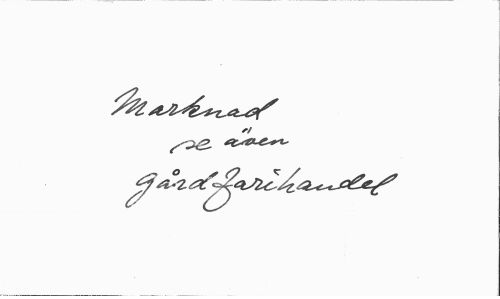 Marknad
se även
gårdfarihandel